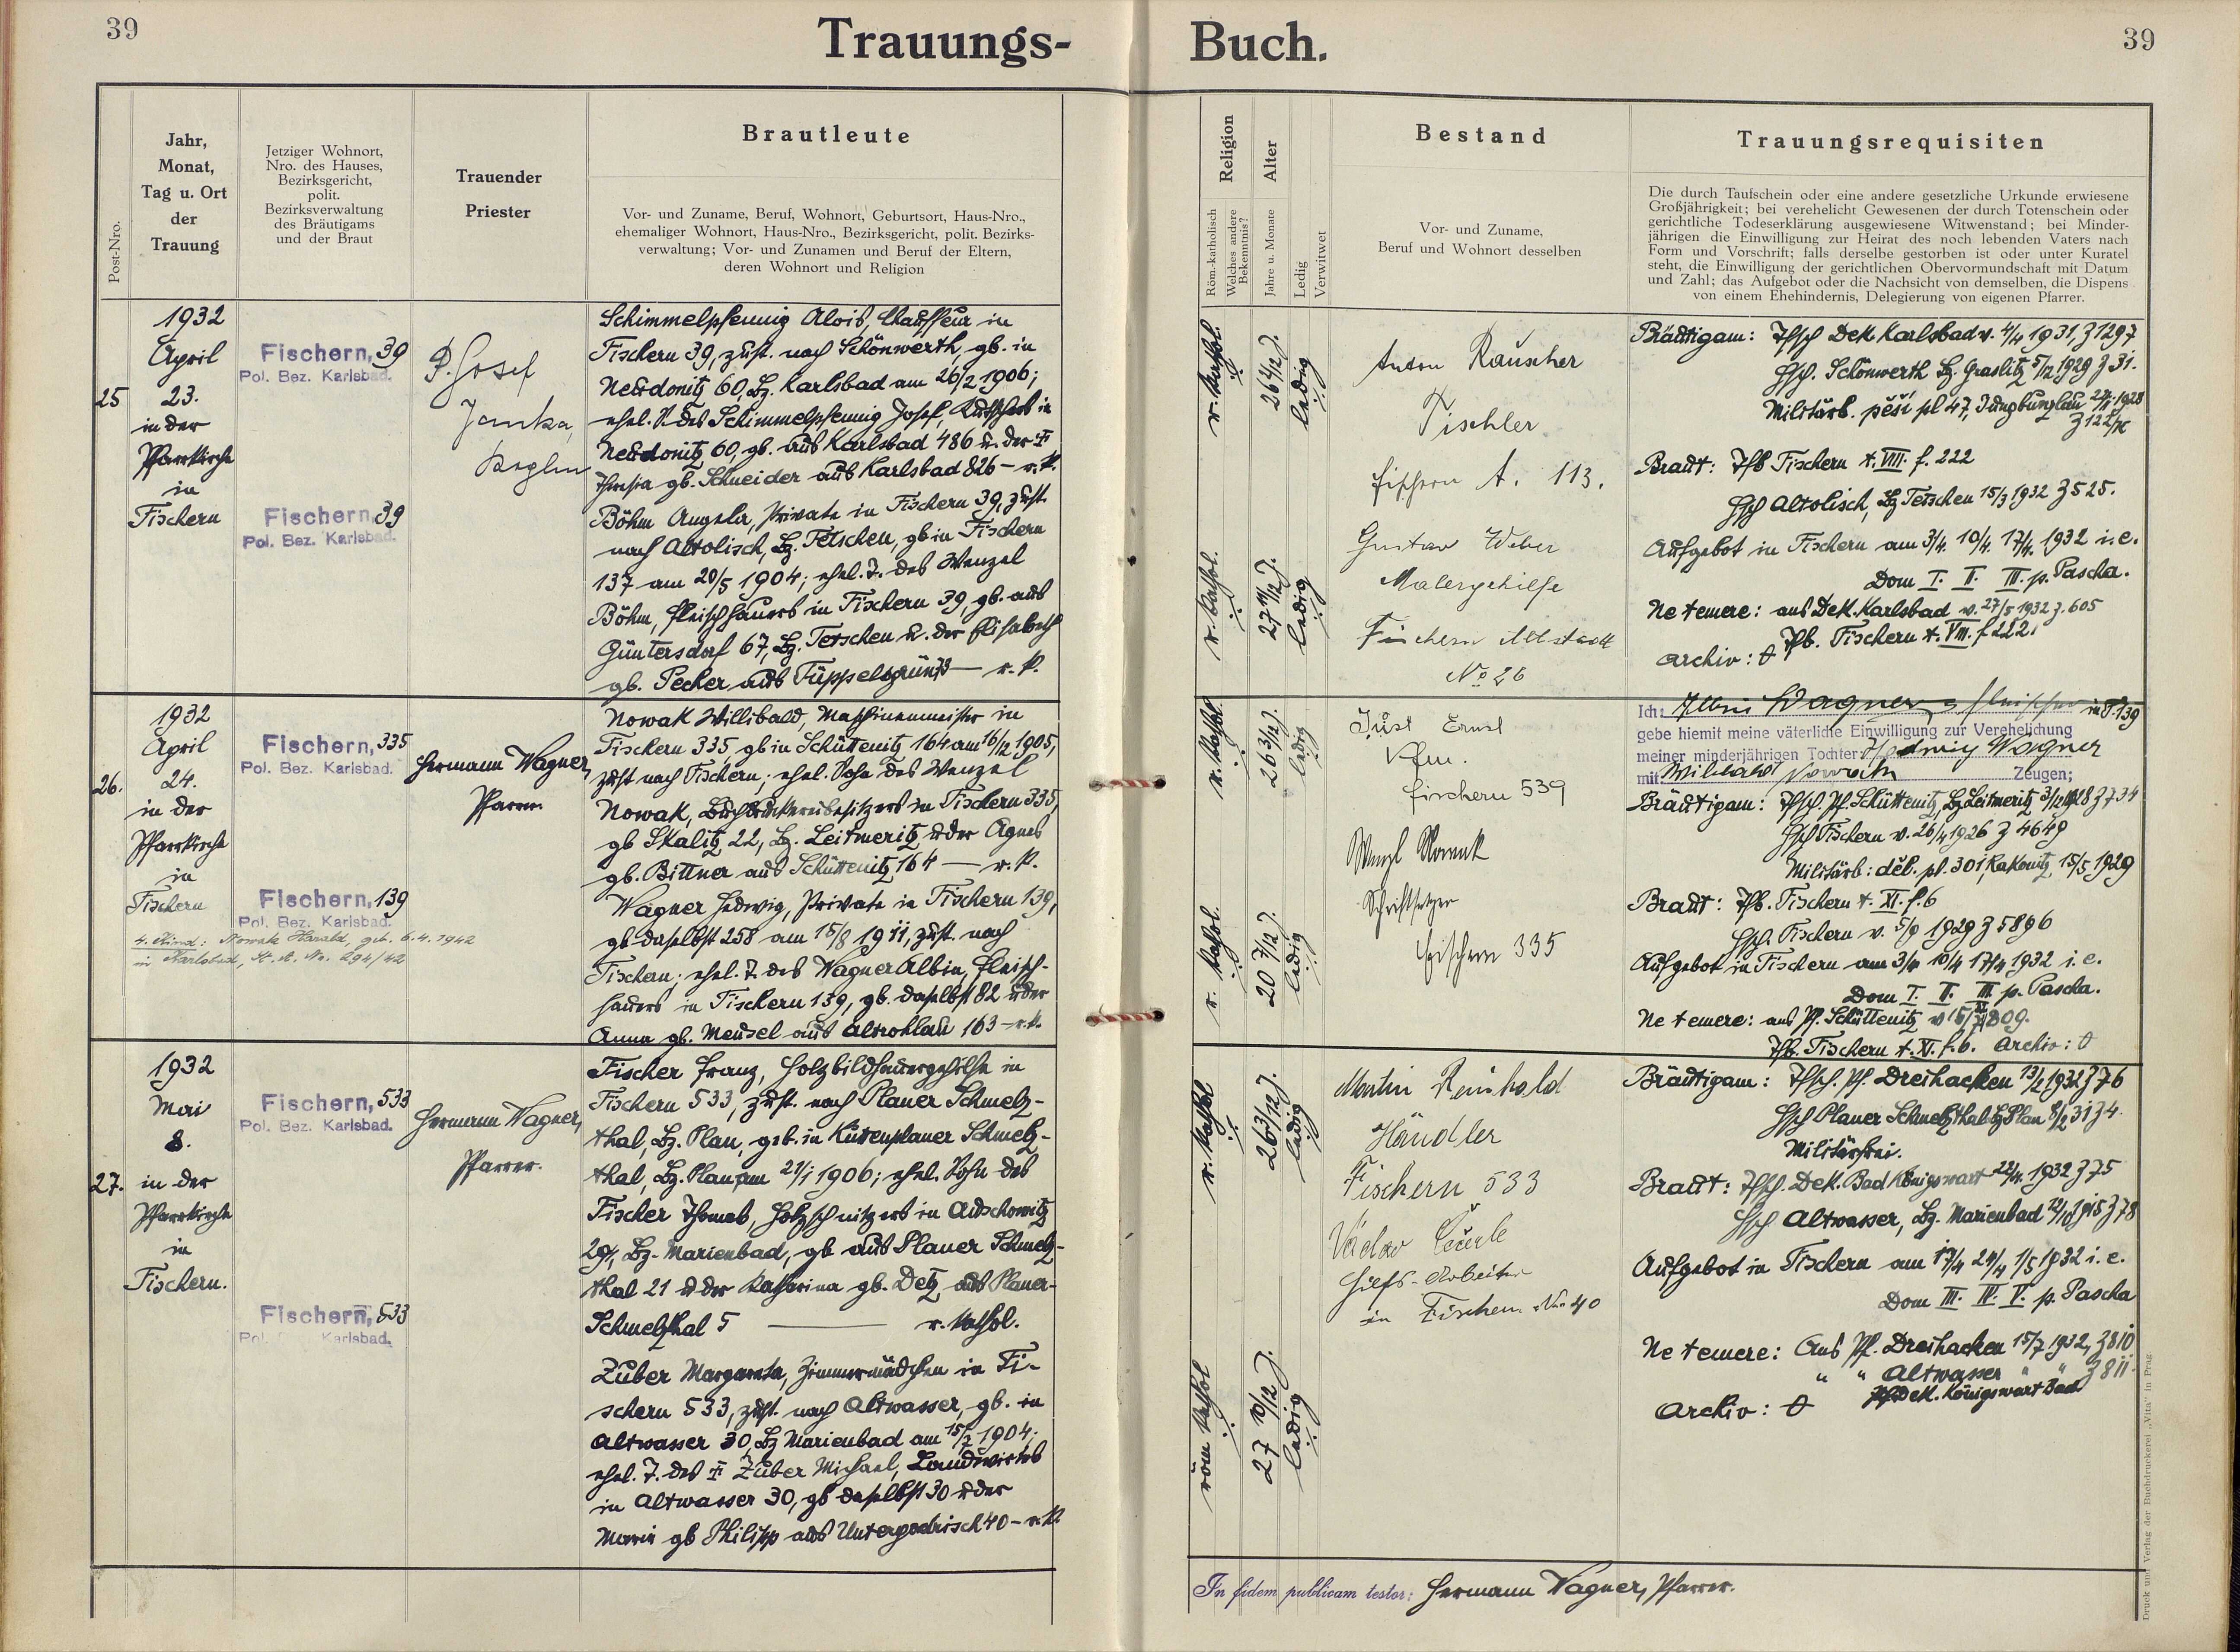 39
Trauungs-
Buch.
39
Post-Nro.
Jahr,
Monat,
Tag u. Ort
der
Trauung
Jetziger Wohnort,
Nro. des Hauses,
Bezirksgericht,
polit.
Bezirksverwaltung
des Bräutigams
und der Braut
Trauender
Priester
Brautleute
Vor- und Zuname, Beruf, Wohnort, Geburtsort, Haus-Nro.,
ehemaliger Wohnort, Haus-Nro., Bezirksgericht, polit. Bezirks-
verwaltung; Vor- und Zunamen und Beruf der Eltern,
deren Wohnort und Religion
Religion
Röm.-katholisch
Welches andere
Bekenntnis?
Alter
Jahre u. Monate
Ledig
Verwitwet
Bestand
Vor- und Zuname,
Beruf und Wohnort desselben
Trauungsrequisiten
Die durch Taufschein oder eine andere gesetzliche Urkunde erwiesene
Großjährigkeit; bei verehelicht Gewesenen der durch Totenschein oder
gerichtliche Todeserklärung ausgewiesene Witwenstand; bei Minder-
jährigen die Einwilligung zur Heirat des noch lebenden Vaters nach
Form und Vorschrift; falls derselbe gestorben ist oder unter Kuratel
steht, die Einwilligung der gerichtlichen Obervormundschaft mit Datum
und Zahl; das Aufgebot oder die Nachsicht von demselben, die Dispens
von einem Ehehindernis, Delegierung von eigenen Pfarrer.
25
1932
April
23.
in der
Pfarrkirche
in
Fischern
Fischern, 39
Pol. Bez. Karlsbad.
Fischern, 39
Pol. Bez. Karlsbad.
P. Josef
Janka,
Kaplan
Schimmelpfennig Alois, Chauffeur in
Fischern 39, zust. nach Schönwerth, gb. in
Neudonitz 60, Bz. Karlsbad am 26/2 1906;
ehel. S. des Schimmelpfennig Josef, Kutschers in
Neudonitz 60, gb. aus Karlsbad 486 u. der ‡
Theresia gb. Schneider aus Karlsbad 826 – r. k.
Böhm Angela, Private in Fischern 39, zust.
nach Altolisch, Bz. Tetschen, gb in Fischern
137 am 20/5 1904; ehel. T. des Wenzel
Böhm, Fleischhauers in Fischern 39, gb. aus
Güntersdorf 67, Bz. Tetschen u. der Elisabeth
gb. Pecher aus Tüppelsgrün 73 – r. k.
r. kathol.
26 1/12 J.
ledig
r. kathol.
27 11/12 J.
ledig
Anton Rauscher
Tischler
Fischern A. 113.
Gustav Weber
Malergehilfe
Fischern Altstadt
No 26
Bräutigam: Tfsch Dek Karlsbad v. 4/4 1931, Z 1297
Hsch. Schönwerth Bz. Graslitz 5/12 1929 Z 31.
Militärb. pěší pl 47, Jungbunzlau 1928
Braut: Tfb Fischern t. VIII. f. 222
Hsch Altolisch, Bz Tetschen 15/3 1932 Z 525.
Aufgebot in Fischern am 3/4. 10/4. 17/4. 1932 i. e.
Dom I. II. III. p. Pascha.
Ne temere: aus Dek. Karlsbad v. 27/5 1932 z. 605
Tfb. Fischern t. VIII. f 222.
Archiv:
26.
1932
April
24.
in der
Pfarrkirche
in
Fischern
Fischern, 335
Pol. Bez. Karlsbad.
Fischern, 139
Pol. Bez. Karlsbad.
4. Kind: Nowak Harald, geb. 6.4.1942
in Karlsbad, St. A. Nr. 294/42
Hermann Wagner,
Pfarrer.
Nowak Willibald, Maschinenmeister in
Fischern 335, gb in Schüttenitz 164 am 16/12 1905,
zust nach Fischern; ehel. Sohn des Wenzel
Nowak, Buchdruckereibesitzers in Fischern 335,
gb Skalitz 22, Bz. Leitmeritz u der Agnes
gb. Bittner aus Schüttenitz 164 – r. k.
Wagner Hedwig, Private in Fischern 139,
gb daselbst 258 am 15/8 1911, zust. nach
Fischern; ehel. T. des Wagner Albin, Fleisch-
hauers in Fischern 139, gb. daselbst 82 u der
Anna gb. Meusel aus Altrohlau 163 – r. k.
r. kathol.
26 3/12 J.
ledig
r. kathol.
20 7/12 J.
ledig
Just Ernst
Kfm.
Fischern 539
Wenzl Nowak
Schriftsetzer
Fischern 335
Ich: Albin Wagner, Fleischer in F. 139
gebe hiemit meine väterliche Einwilligung zur Verehelichung
meiner minderjährigen Tochter Hedwig Wagner
mit Wilibald Nowak Zeugen;
Bräutigam: Tfsch. Pf. Schüttenitz, Bz Leitmeritz Z 734
Hsch Fischern v. 26/4 1926 Z 4649
Militärb: děl. pl. 301, Rakonitz, 15/5 1929
Braut: Tfb. Fischern t. XI. f. 6
Hsch. Fischern v. 5/9 1929 Z 5896
Aufgebot in Fischern am 3/4 10/4 17/4 1932 i. e.
Dom I. II. III. p. Pascha.
Ne temere: aus Pf. Schüttenitz 809.
Tfb. Fischern t. XI. f. 6. Archiv:
27.
1932
Mai
8.
in der
Pfarrkirche
in
Fischern.
Fischern, 533
Pol. Bez. Karlsbad.
Fischern, 533
Pol. Bez. Karlsbad.
Hermann Wagner,
Pfarrer.
Fischer Franz, Holzbildhauergehilfe in
Fischern 533, zust. nach Planer Schmelz-
thal, Bz. Plan, geb. in Kuttenplaner Schmelz-
thal, Bz. Plan am 21/1 1906; ehel. Sohn des
Fischer Thomas, Holzschnitzers in Auschowitz
291, Bz. Marienbad, gb. aus Planer Schmelz-
thal 21 u der Katharina gb. Detz aus Planer-
Schmelzthal 5 – r. kathol.
Zuber Margareta, Zimmermädchen in Fi-
schern 533, zust. nach Altwasser, gb. in
Altwasser 30, Bz Marienbad am 15/7 1904;
ehel. T. des ‡ Zuber Michael, Landwirtes
in Altwasser 30, gb daselbst 30 u der
Maria gb Philipp aus Untergodrisch 40 – r. k.
r. kathol
26 3/12 J.
ledig
röm kathol
27 10/12 J.
ledig
Martin Reinhold
Händler
Fischern 533
Václav
Hilfs-Arbeiter
in Fischern No 40
Bräutigam: Tfsch. Pf. Dreihacken 13/2 1932 Z 76
Hsch Planer Schmelzthal Bz Plan 8/2 31 Z 4.
Militärfrei.
Braut: Tfsch. Dek. Bad Königswart 22/4. 1932 Z 75
Hsch Altwasser, Bz. Marienbad 12/10 1915 Z 78
Aufgebot in Fischern am 17/4 24/4 1/5 1932 i. e.
Dom III. IV. V. p. Pascha
Ne temere: Aus Pf. Dreihacken 15/7 1932, Z 810
" " Altwasser " " Z 811.
Dek. Königswart Bad
Archiv:
In fidem publicam testor: Hermann Wagner, Pfarrer.
Druck und Verlag der Buchdruckerei „Vita“ in Prag.